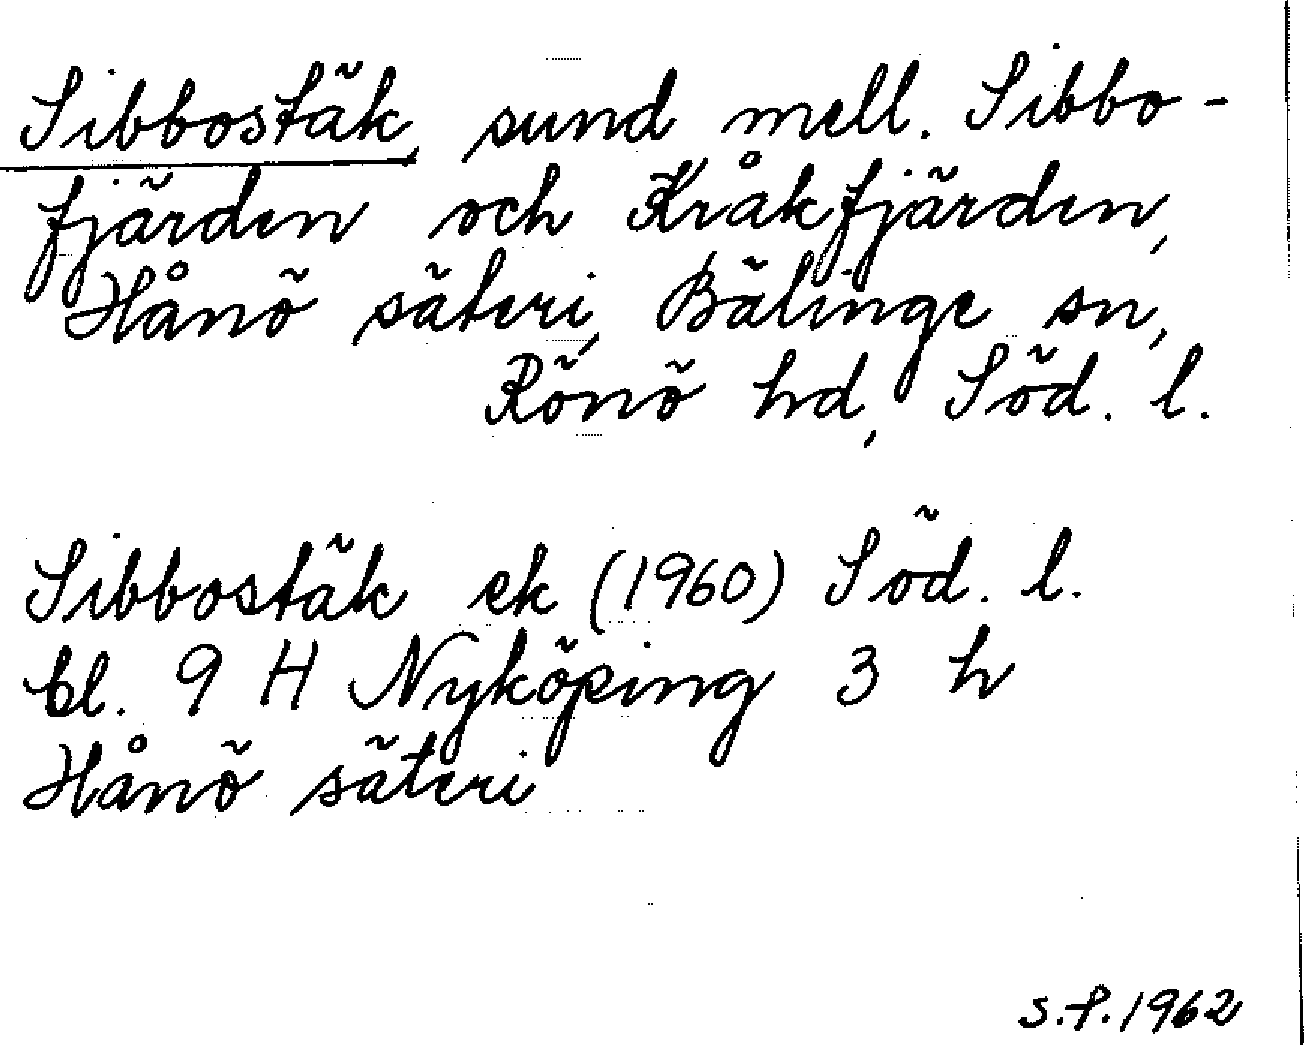 Sibbostäk, sund mell. Sibbo-
fjärden och Kråkfjärden,
Hånö säteri, Bälinge sn,
Rönö hd, Söd. l.
Sibbostäk ek (1960) Söd. l.
bl. 9 H Nyköping 3 h
Hånö säteri
S.P. 1962